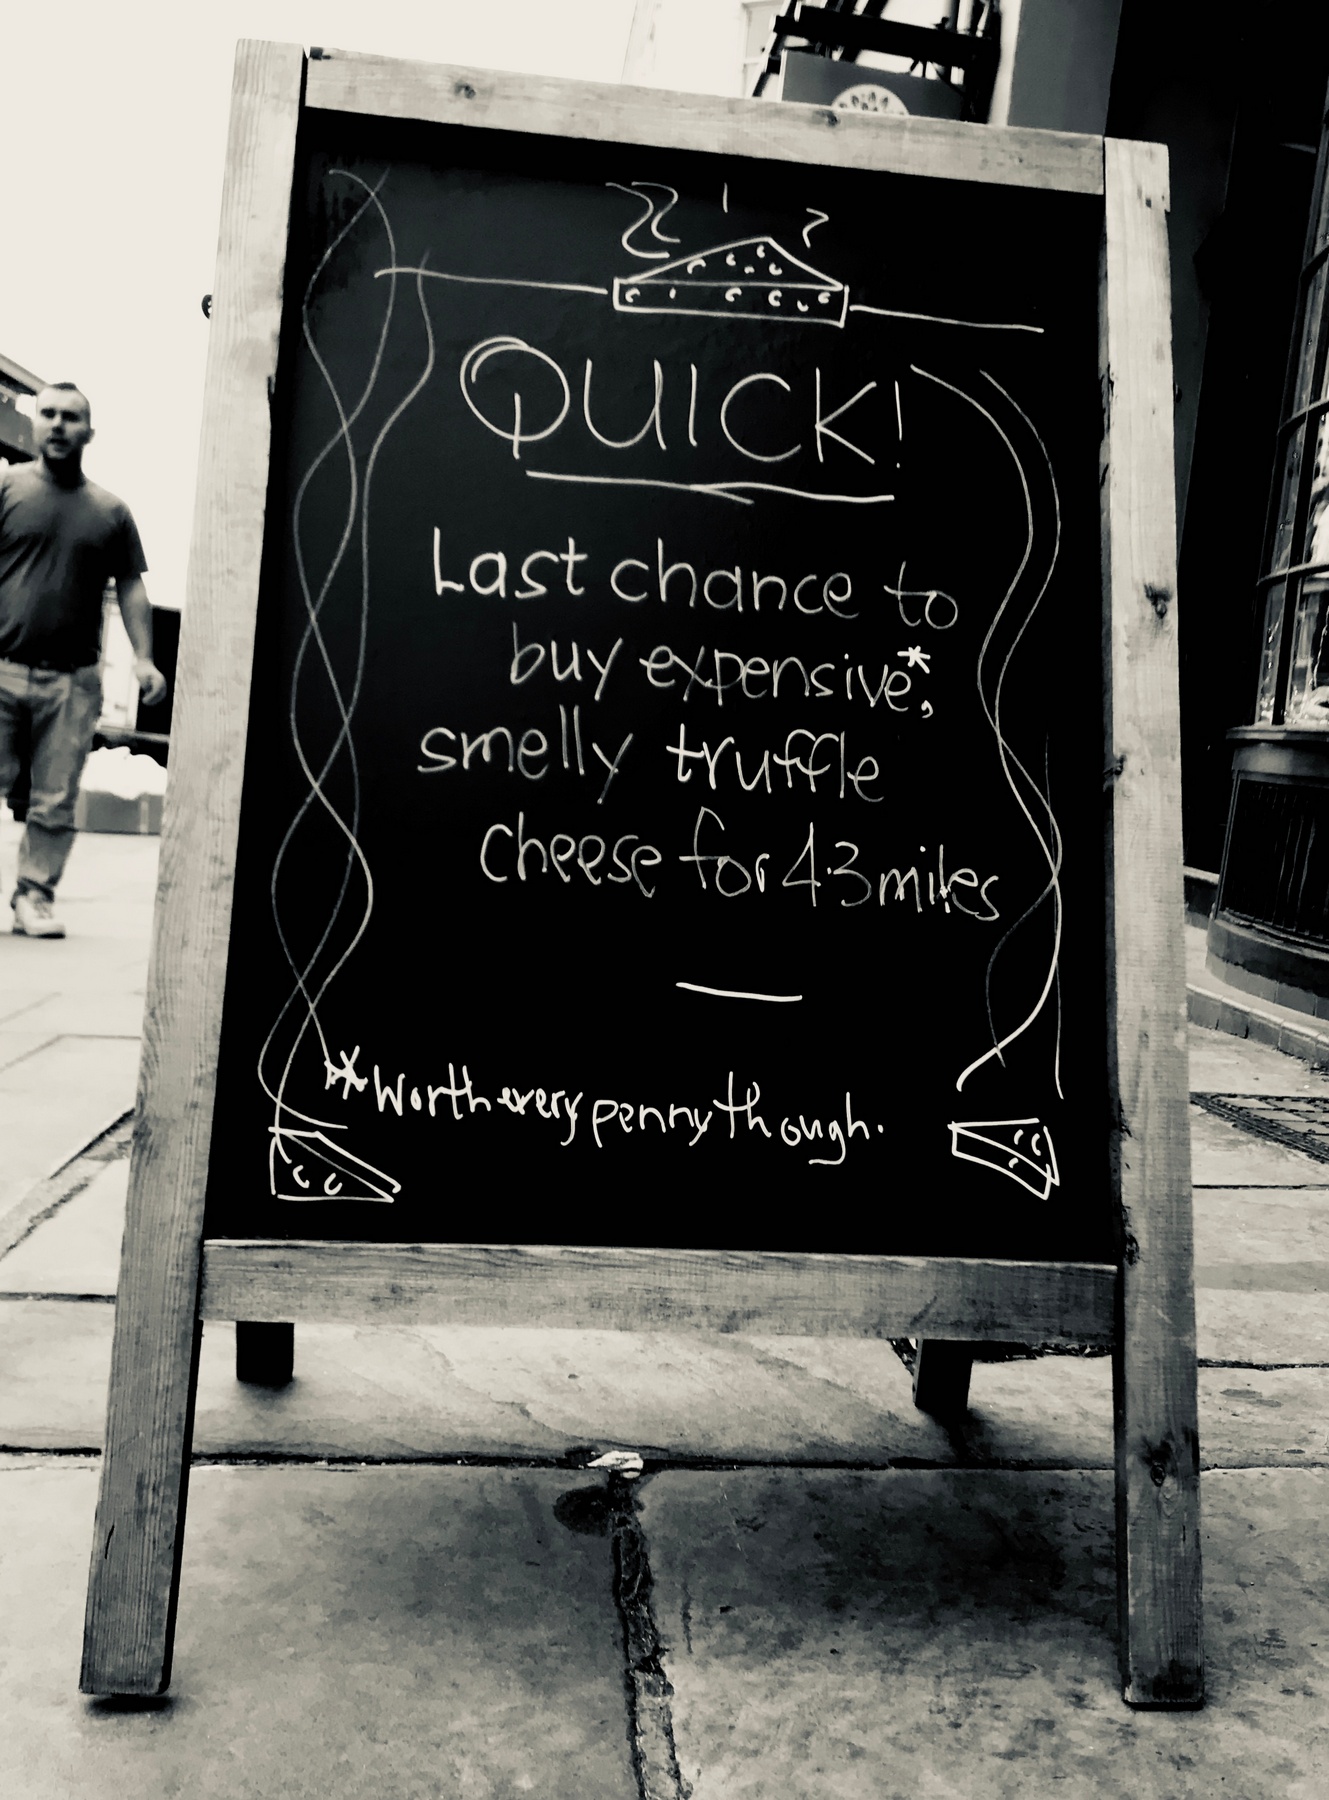 QUICK!
Last chance to
buy expensive*,
smelly truffle
cheese for 4.3 miles
*Worth every penny though.